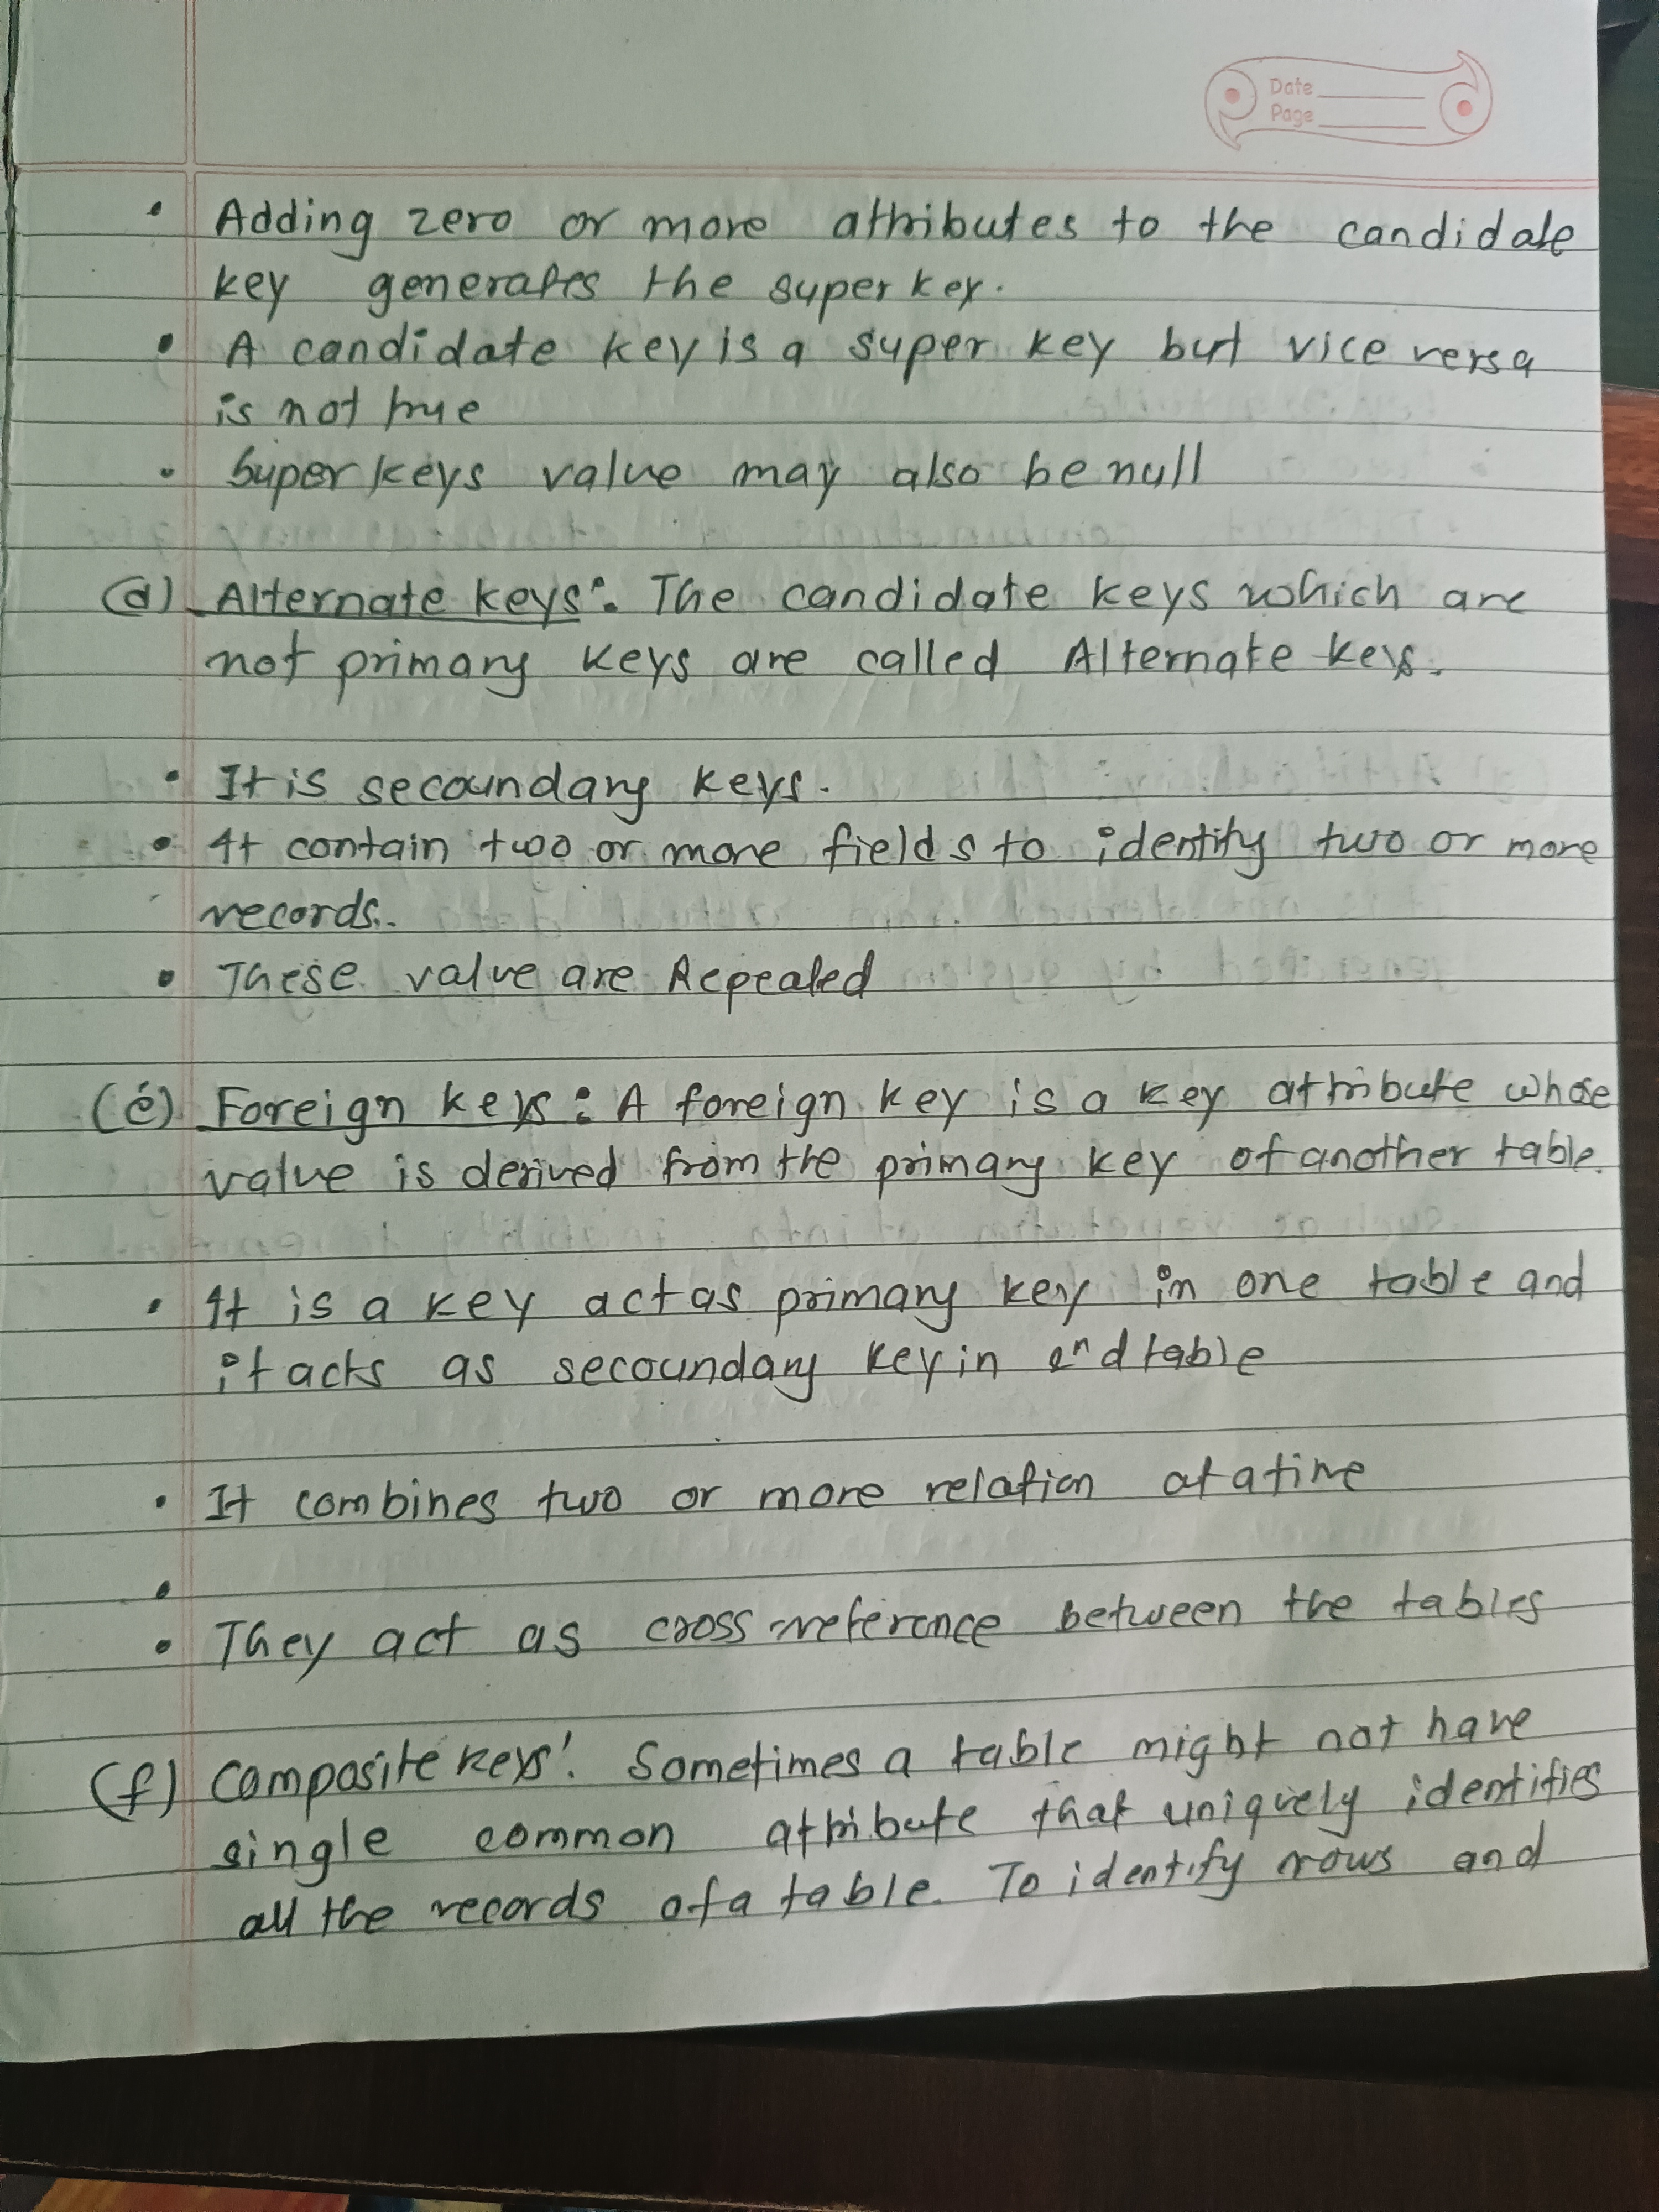 Date
Page
• Adding zero or more attributes to the candidate
key generates the super key.
• A candidate key is a super key but vice versa
is not true
• Super keys value may also be null
(d) Alternate keys: The candidate keys which are
not primary keys are called Alternate keys.
• It is secoundary keys.
• It contain two or more fields to identify two or more
records.
• These value are Repeated
(e) Foreign keys: A foreign key is a key attribute whose
value is derived from the primary key of another table.
• It is a key act as primary key in one table and
it acts as secoundary key in 2nd table
• It combines two or more relation at a time
•
• They act as cross reference between the tables
(f) Composite keys: Sometimes a table might not have
single common attribute that uniquely identifies
all the records of a table. To identify rows and